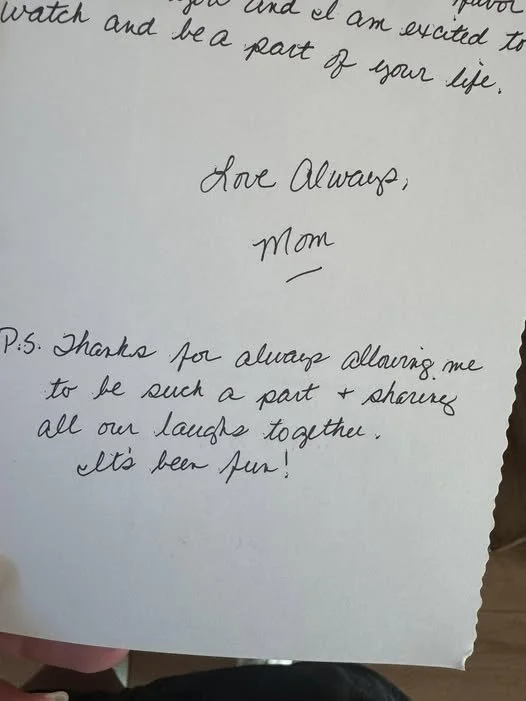 you and I am excited to
watch and be a part of your life.
Love Always,
Mom
P.S. Thanks for always allowing me
to be such a part + sharing
all our laughs together.
It's been fun!